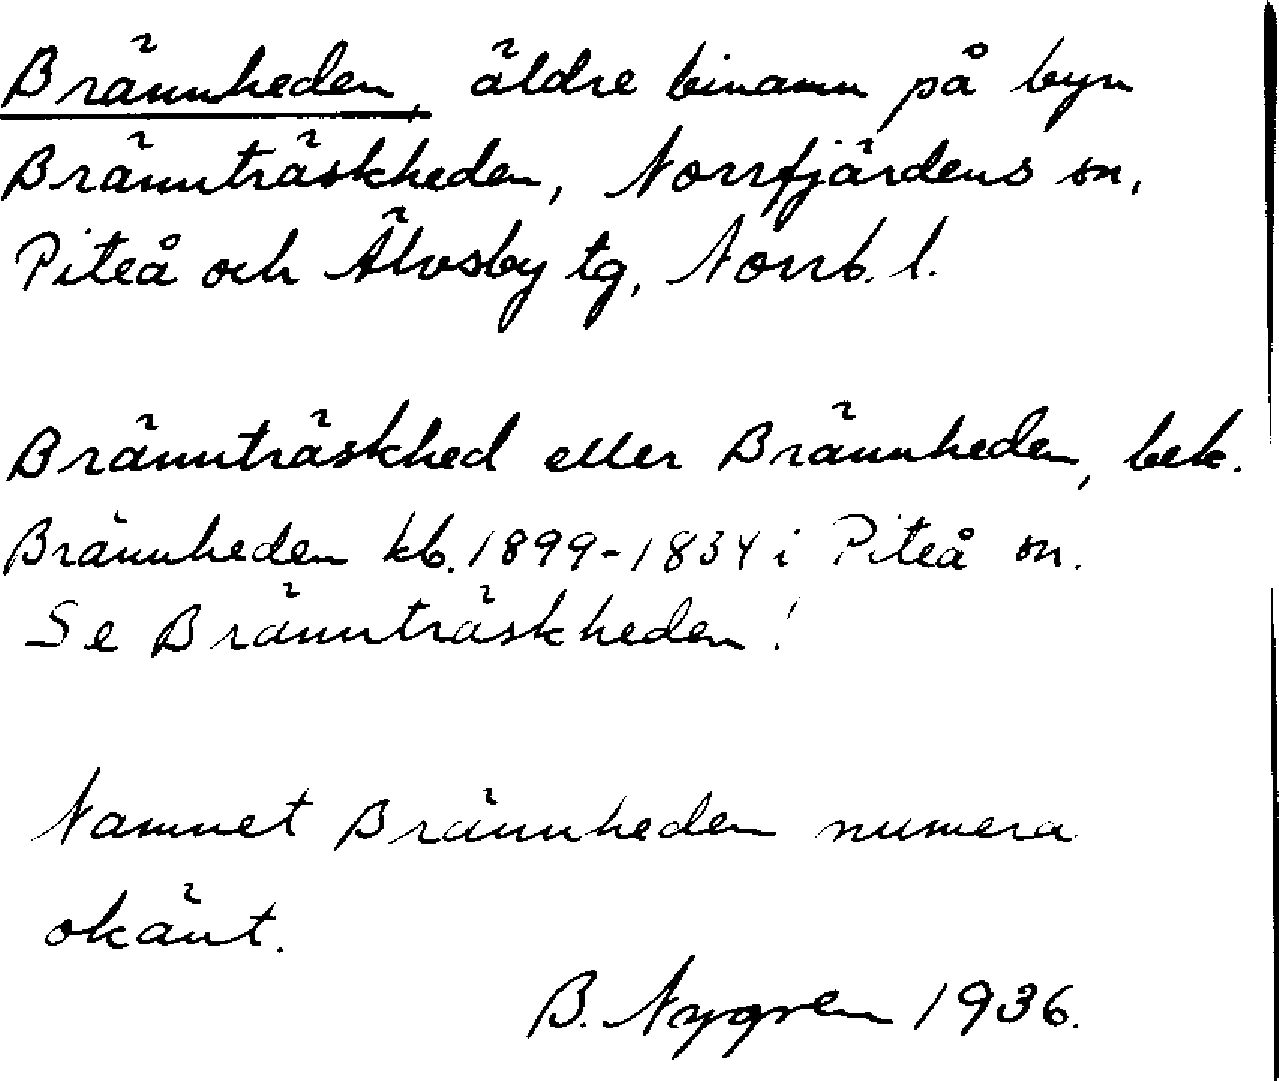 Brännheden, äldre binamn på byn
Brännträskheden, Norrfjärdens sn,
Piteå och Älvsby tg, Norrb. l.
Brännträskhed eller Brännheden, bek.
Brännheden kb. 1899-1834 i Piteå sn.
Se Brännträskheden!
Namnet Brännheden numera
okänt.
B. Nygren 1936.